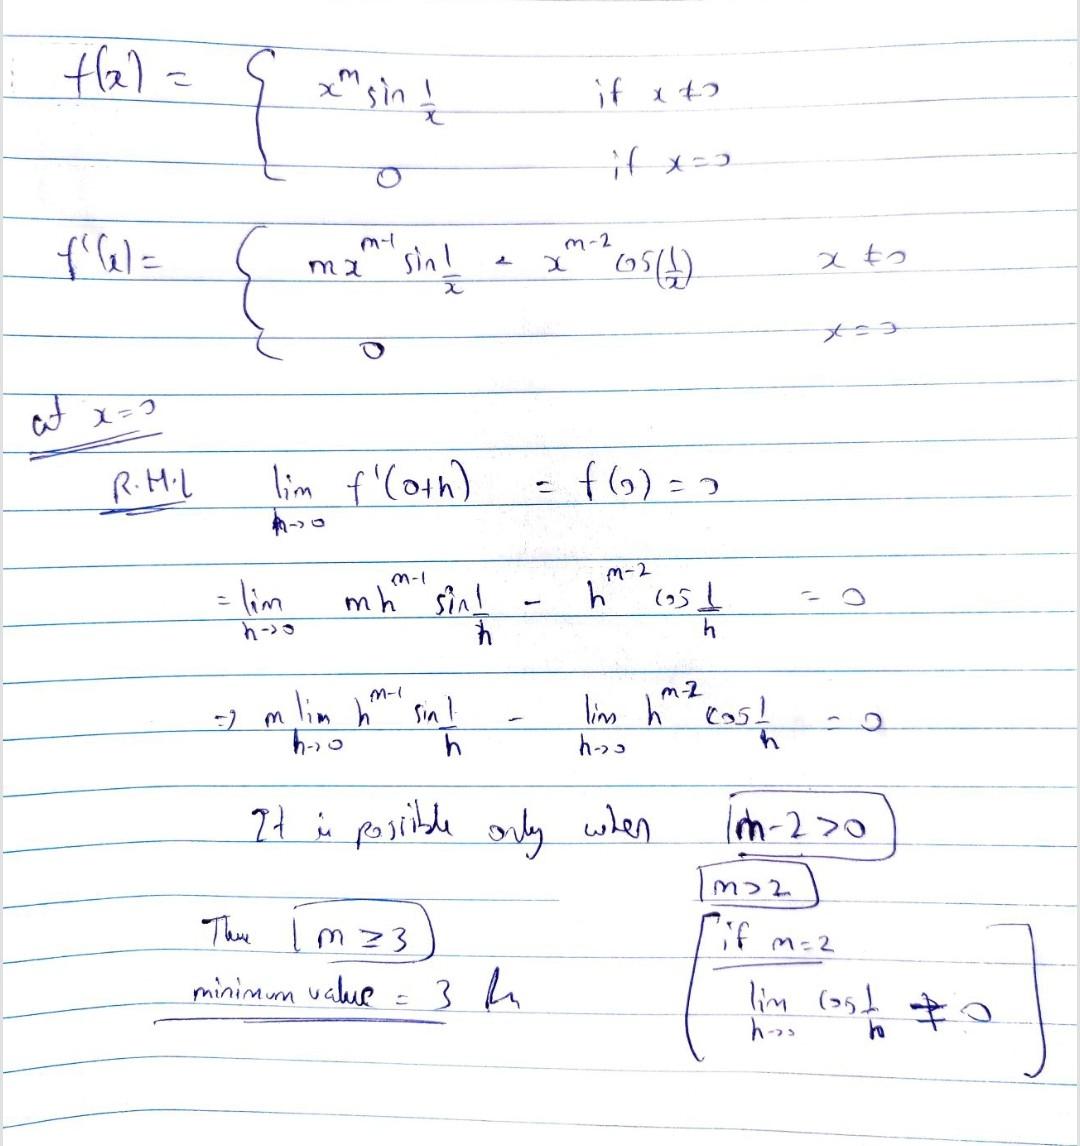 f(x) = { x^m sin 1/x if x ≠ 0
0 if x = 0
f'(x) = { m x^(m-1) sin 1/x - x^(m-2) cos(1/x) x ≠ 0
0 x = 0
at x = 0
R.H.L lim h->0 f'(0+h) = f(0) = 0
= lim h->0 m h^(m-1) sin 1/h - h^(m-2) cos 1/h = 0
=> m lim h->0 h^(m-1) sin 1/h - lim h->0 h^(m-2) cos 1/h = 0
It is possible only when m-2>0
m>2
Thus m ≥ 3
if m=2
minimum value = 3
lim h->0 cos 1/h ≠ 0